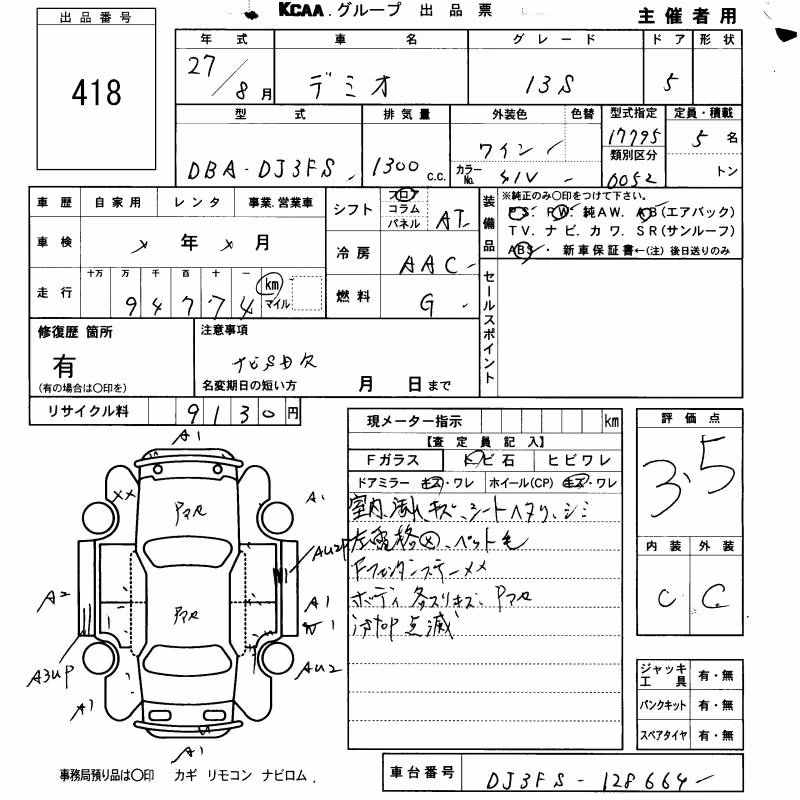 KCAA グループ 出品票
主催者用
出品番号
418
年式 車名 グレード ドア 形状
27/8月 デミオ 13S 5
型式 排気量 外装色 色替 型式指定 定員・積載
DBA-DJ3FS 1300 c.c. ワイン 17795 5名
カラーNo. 41V 類別区分 0052 トン
車歴 自家用 レンタ 事業.営業車
車検 年 月
走行 十万 万 千 百 十 一
94774 km マイル
シフト フロア コラム パネル AT
冷房 AAC
燃料 G
装備品
※純正のみ○印をつけて下さい。
PS. PW. 純AW. AB(エアバック)
TV. ナビ. カワ. SR(サンルーフ)
ABS ・ 新車保証書←(注)後日送りのみ
セールスポイント
修復歴 箇所
有
(有の場合は○印を)
注意事項
名変期日の短い方 月 日まで
リサイクル料 9130円
現メーター指示 km
【査定員記入】
Fガラス トビ石 ヒビワレ
ドアミラー キズ・ワレ ホイール(CP) キズ・ワレ
室内汚れキズ、シートヘタリ、シミ
左電格㋱、ペット毛
ボディ各スリキズ、
点滅
評価点
3.5
内装 外装
C C
ジャッキ工具 有・無
パンクキット 有・無
スペアタイヤ 有・無
A1
XX
A1
AU2P
A2
A1
A3UP
AU2
A1
A1
事務局預り品は○印 カギ リモコン ナビロム.
車台番号 DJ3FS-128664